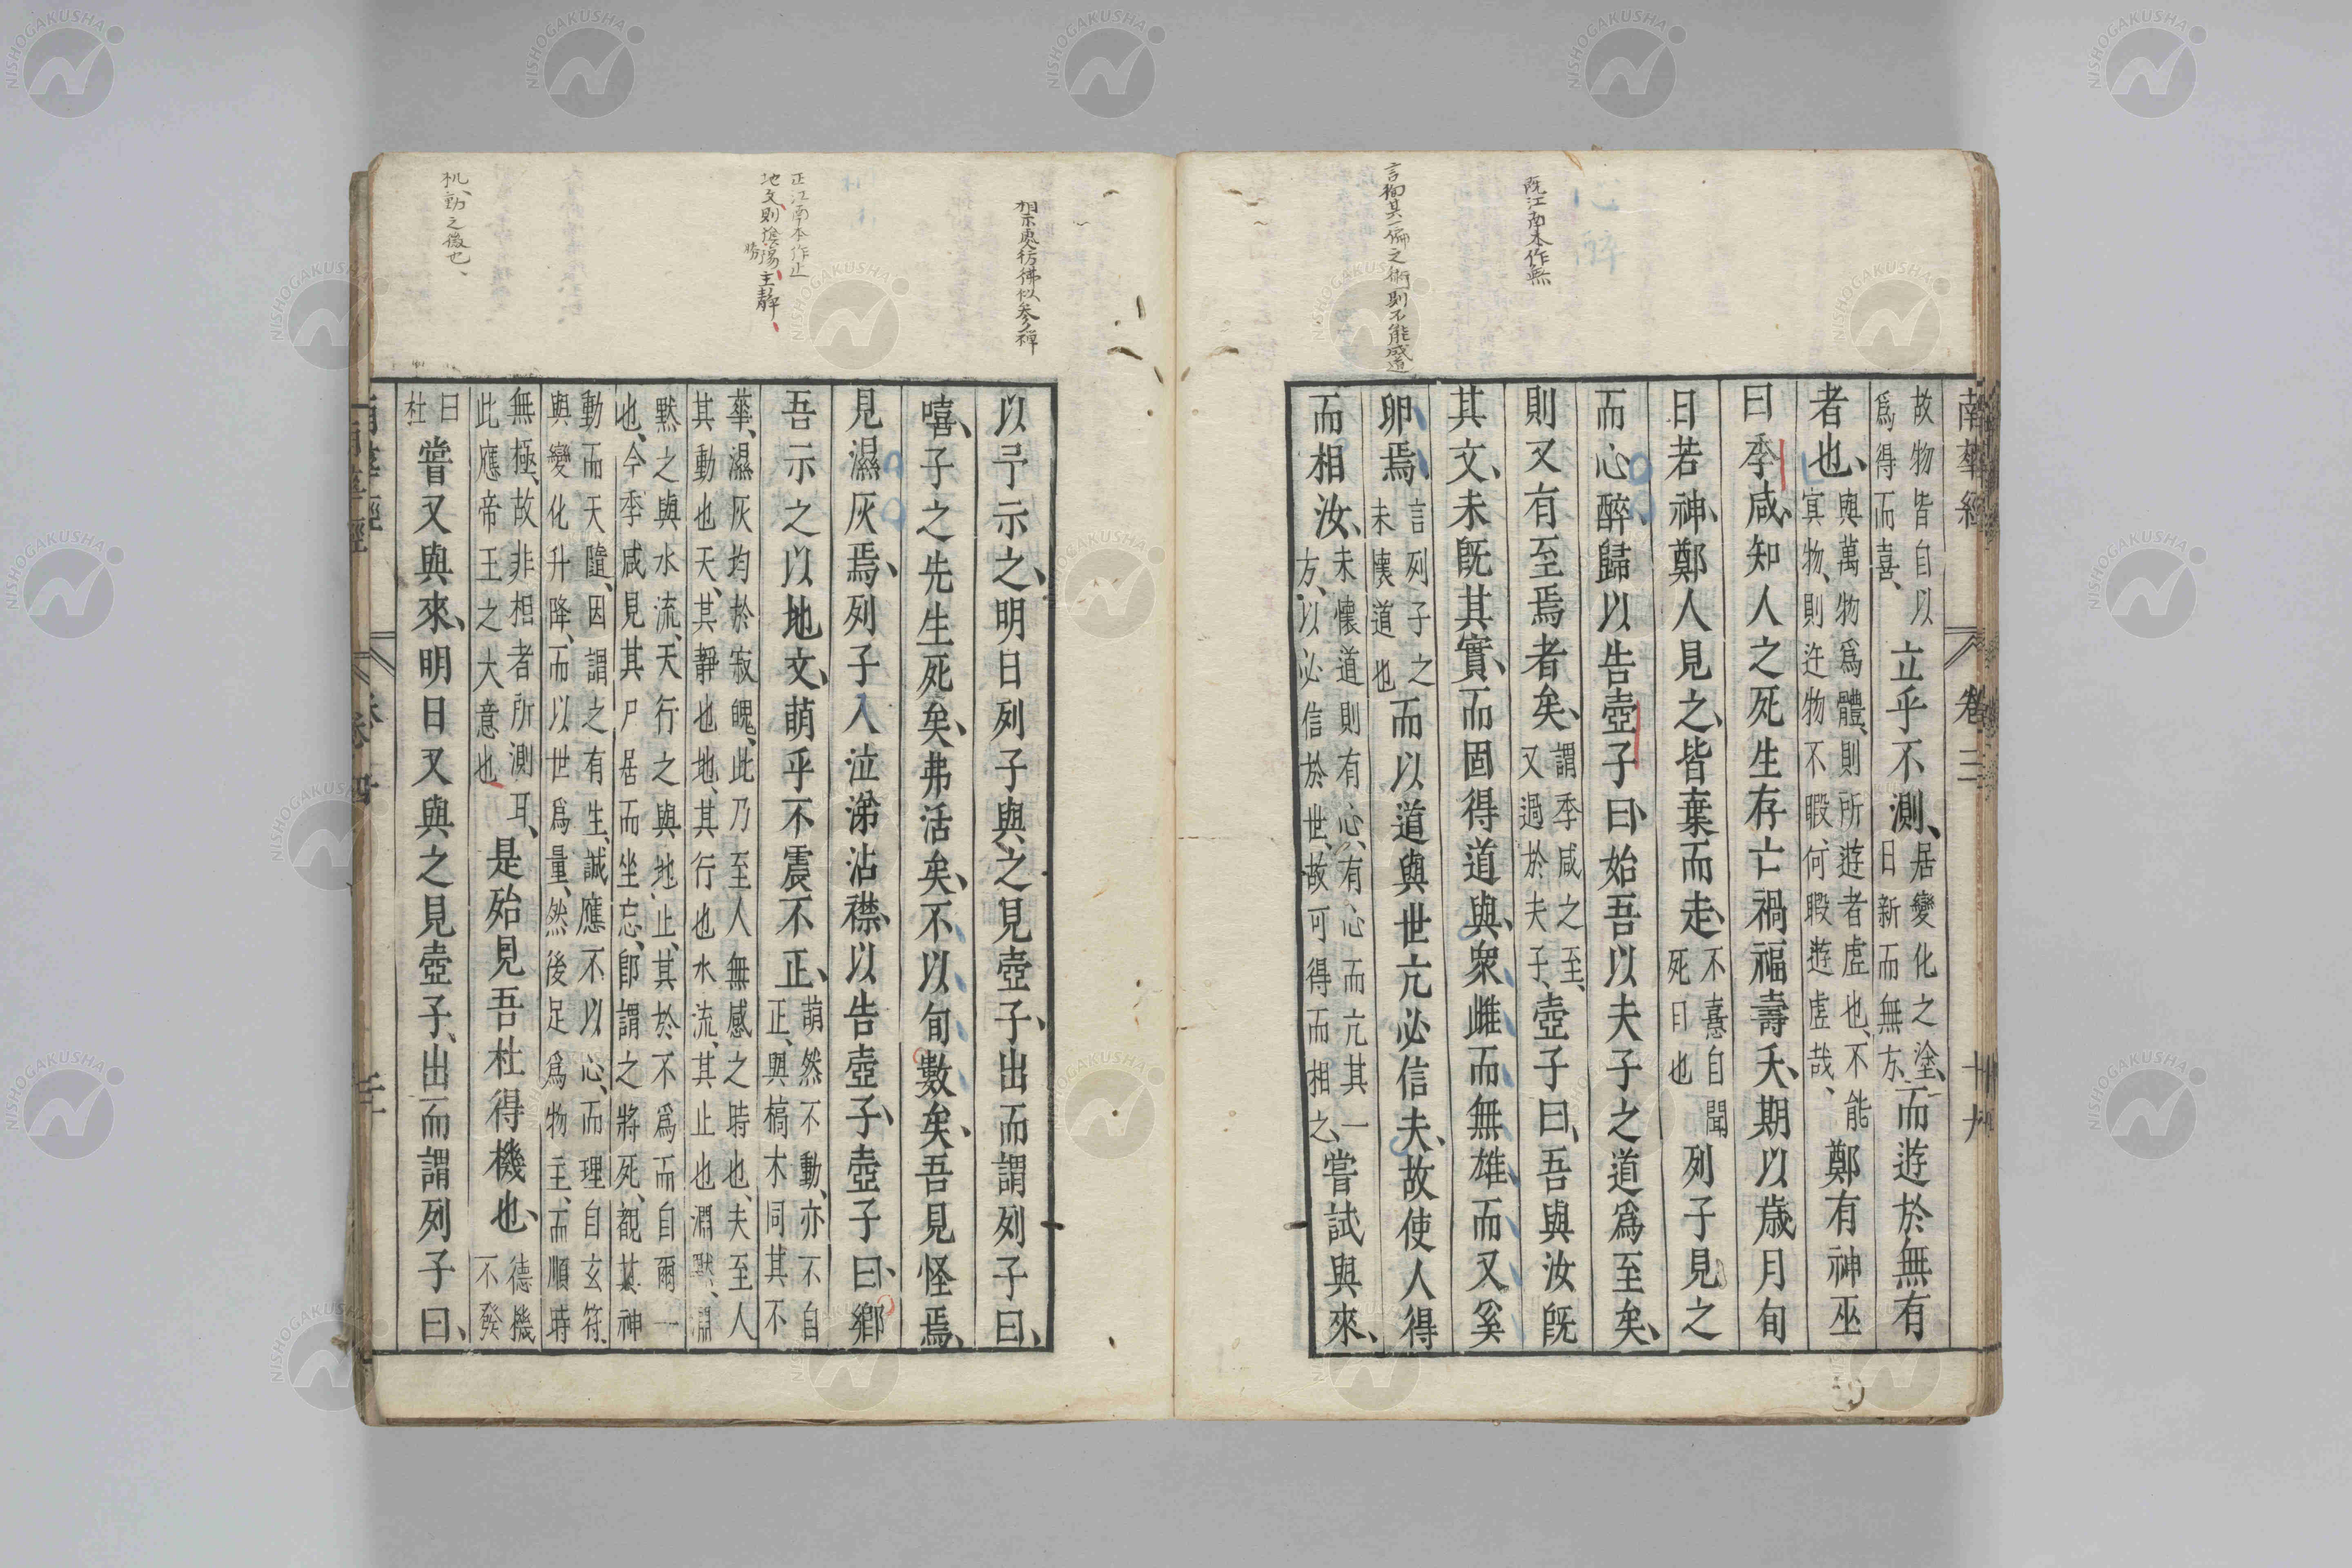 南華經 卷三 十九
故物皆自以
爲得而喜、
立乎不測、
居變化之塗、
日新而無方、
而遊於無有
者也、
與萬物爲體、則所遊者虛也、不能
冥物、則迕物不暇、何暇遊虛哉、
鄭有神巫
曰季咸、知人之死生存亡禍福壽夭、期以歲月旬
日若神、鄭人見之、皆棄而走、
不憙自聞
死日也
列子見之
而心醉、歸以告壺子曰、始吾以夫子之道爲至矣、
則又有至焉者矣、
謂季咸之至、
又過於夫子、
壺子曰、吾與汝旣
其文、未旣其實、而固得道與、衆雌而無雄、而又奚
卵焉、
言列子之
未懷道也
而以道與世亢必信夫、故使人得
而相汝、
未懷道則有心、有心而亢其一
方、以必信於世、故可得而相之、
嘗試與來、
以予示之、明日列子與之見壺子、出而謂列子曰、
嘻、子之先生死矣、弗活矣、不以旬數矣、吾見怪焉、
見濕灰焉、列子入泣涕沾襟、以告壺子、壺子曰、鄉
吾示之以地文、萌乎不震不正、
萌然不動、亦不自
正、與槁木同其不
華、濕灰均於寂魄、此乃至人無感之時也、夫至人
其動也天、其靜也地、其行也水流、其止也淵默、淵
默之與水流、天行之與地止、其於不爲而自爾一
也、今季咸見其尸居而坐忘、卽謂之將死、覩其神
動而天隨、因謂之有生、誠應不以心、而理自玄符、
與變化升降、而以世爲量、然後足爲物主、而順時
無極、故非相者所測耳、
此應帝王之大意也
是殆見吾杜得機也、
德機
不發
曰
杜
嘗又與來、明日又與之見壺子、出而謂列子曰、
旣江南本作無
言徇其一偏之術則不能感道
相示處彷彿似參禪
正江南本作止
地文則陰勝陽、主靜、
机、動之微也、
NISHOGAKUSHA